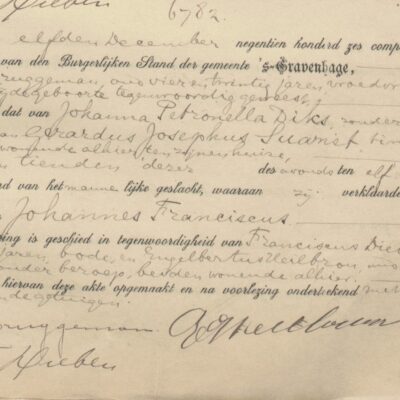 Kieben
6782.
elfden December negentien honderd zes comp
van den Burgerlijken Stand der gemeente 's-Gravenhage,
ruggeman, oud vier en twintig jaren, vroedvr
de geboorte tegenwoordig geweest,
dat van Johanna Petronella Diks, zonder
van Gerardus Josephus Suarist tim
wonende alhier, ten zijnen huize,
tienden dezer des avonds ten elf
nd van het mannelijke geslacht, waaraan zij verklaarde
Johannes Franciscus
ing is geschied in tegenwoordigheid van Franciscus Die
jaren, bode, en Engelbertus Heilbron, oud
zonder beroep, beiden wonende alhier,
hiervan deze akte opgemaakt en na voorlezing onderteekend met
de getuigen.
ruggeman
Kieben